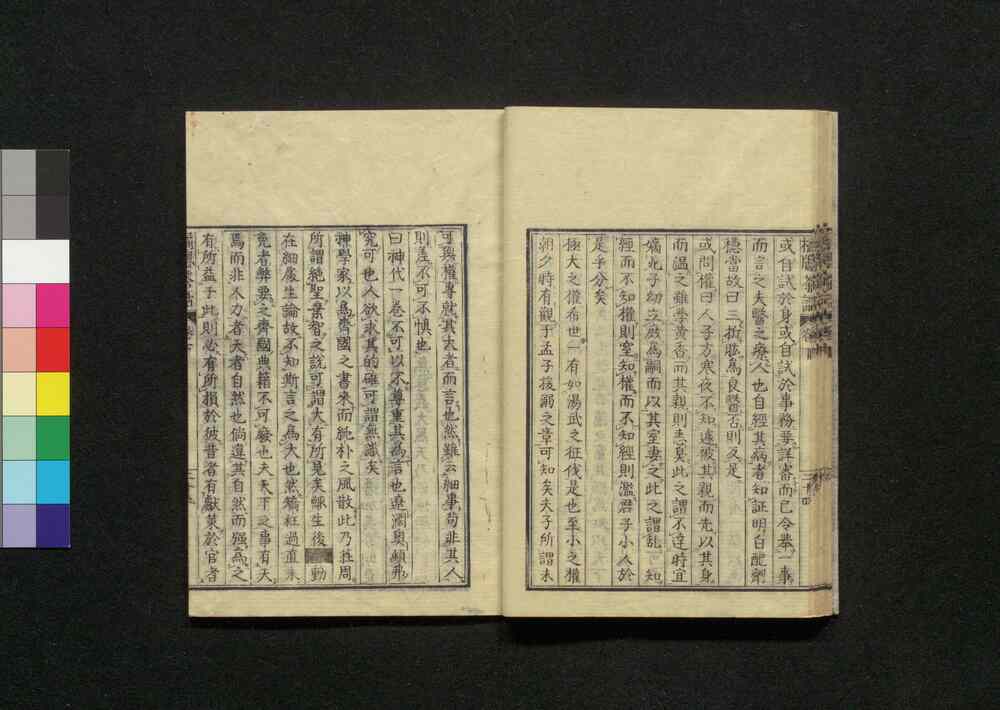 或自試於身或自試於事務要詳審而已今擧一事
而言之夫醫之療人也自經其病者知証明白配劑
穩當故曰三折肱爲良醫否則反是
或問權曰人子方寒夜不知遽被其親而先以其身
而溫之雖學黃香而其親則恚矣此之謂不達時宜
嫡北子幼立庶爲嗣而以其室妻之此之謂亂知
經而不知權則窒知權而不知經則濫君子小人於
是乎分矣
極大之權希世一有如湯武之征伐是也至小之權
朝夕時有觀于孟子援溺之章可知矣夫子所謂未
可與權專就其大者而言也然雖云細事苟非其人
則差不可不愼也
曰神代一卷不可以不尊重其爲言也遼濶奧頤弗
究可也人欲求其的確可謂無識矣
神學家以爲齊國之書來而純朴之風散此乃莊周
所謂絶聖棄智之說可謂大有所見矣緜生後動
在細處生論故不知斯言之爲大也然矯枉過直未
免者弊要之齊國典籍不可廢也夫天下之事有天
焉而非人力者天者自然也倘違其自然而强爲之
有所益于此則必有所損於彼昔者有獻策於官者